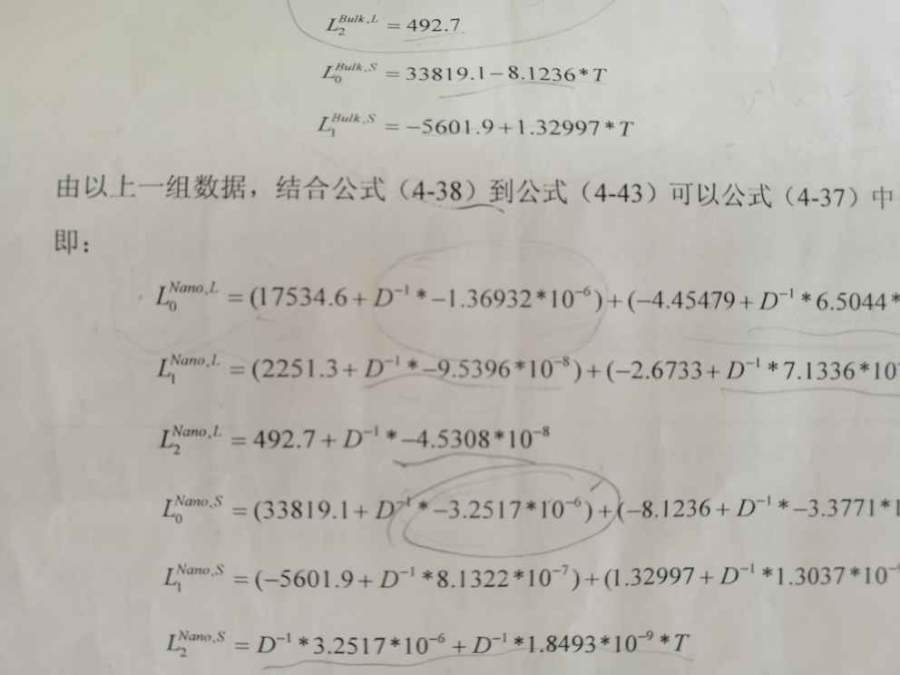 L₂^{Bulk,L} = 492.7
L₀^{Bulk,S} = 33819.1−8.1236*T
L₁^{Bulk,S} = −5601.9+1.32997*T
由以上一组数据，结合公式（4-38）到公式（4-43）可以公式（4-37）中
即：
L₀^{Nano,L} = (17534.6+D⁻¹*−1.36932*10⁻⁶)+(−4.45479+D⁻¹*6.5044*
L₁^{Nano,L} = (2251.3+D⁻¹*−9.5396*10⁻⁸)+(−2.6733+D⁻¹*7.1336*10
L₂^{Nano,L} = 492.7+D⁻¹*−4.5308*10⁻⁸
L₀^{Nano,S} = (33819.1+D⁻¹*−3.2517*10⁻⁶)+(−8.1236+D⁻¹*−3.3771*1
L₁^{Nano,S} = (−5601.9+D⁻¹*8.1322*10⁻⁷)+(1.32997+D⁻¹*1.3037*10⁻
L₂^{Nano,S} = D⁻¹*3.2517*10⁻⁶+D⁻¹*1.8493*10⁻⁹*T